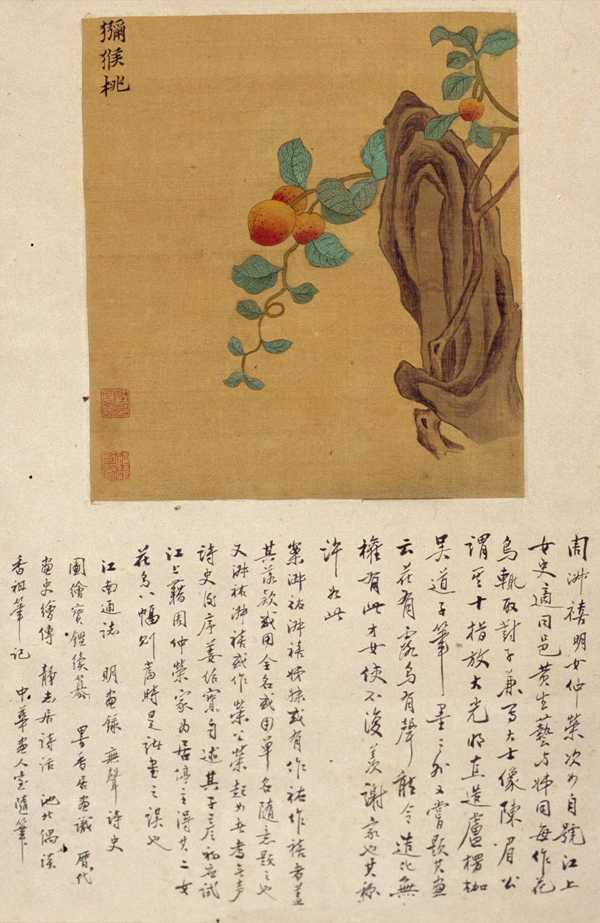 獼猴桃
周淑禧明女仲榮次女自號江上
女史適同邑黃生藝与姊同每作花
鳥輒取對兼寫大士像陳眉公
謂其十指放大光明直造盧楞枷
吳道子筆墨之外又嘗題其画
云花有露鳥有聲能令造化無
權有此才女使不復羨謝家也其標
許如此
案淑祜淑禧姊妹或有作祐作禧者蓋
其落款或用全名或用單名隨意題之也
又淑祜淑禧或作榮公榮起女無考無聲
詩史後序姜紹自述其子應試
江上籍周仲榮家為居停主得其二女
花鳥八幅則當時是之誤也
江南通志 明画錄 無聲詩史
圖繪寶鑑續纂 墨香居画識 歷代
画史彙傳 靜志居詩話 池北偶談
香祖筆記 中華画人室隨筆